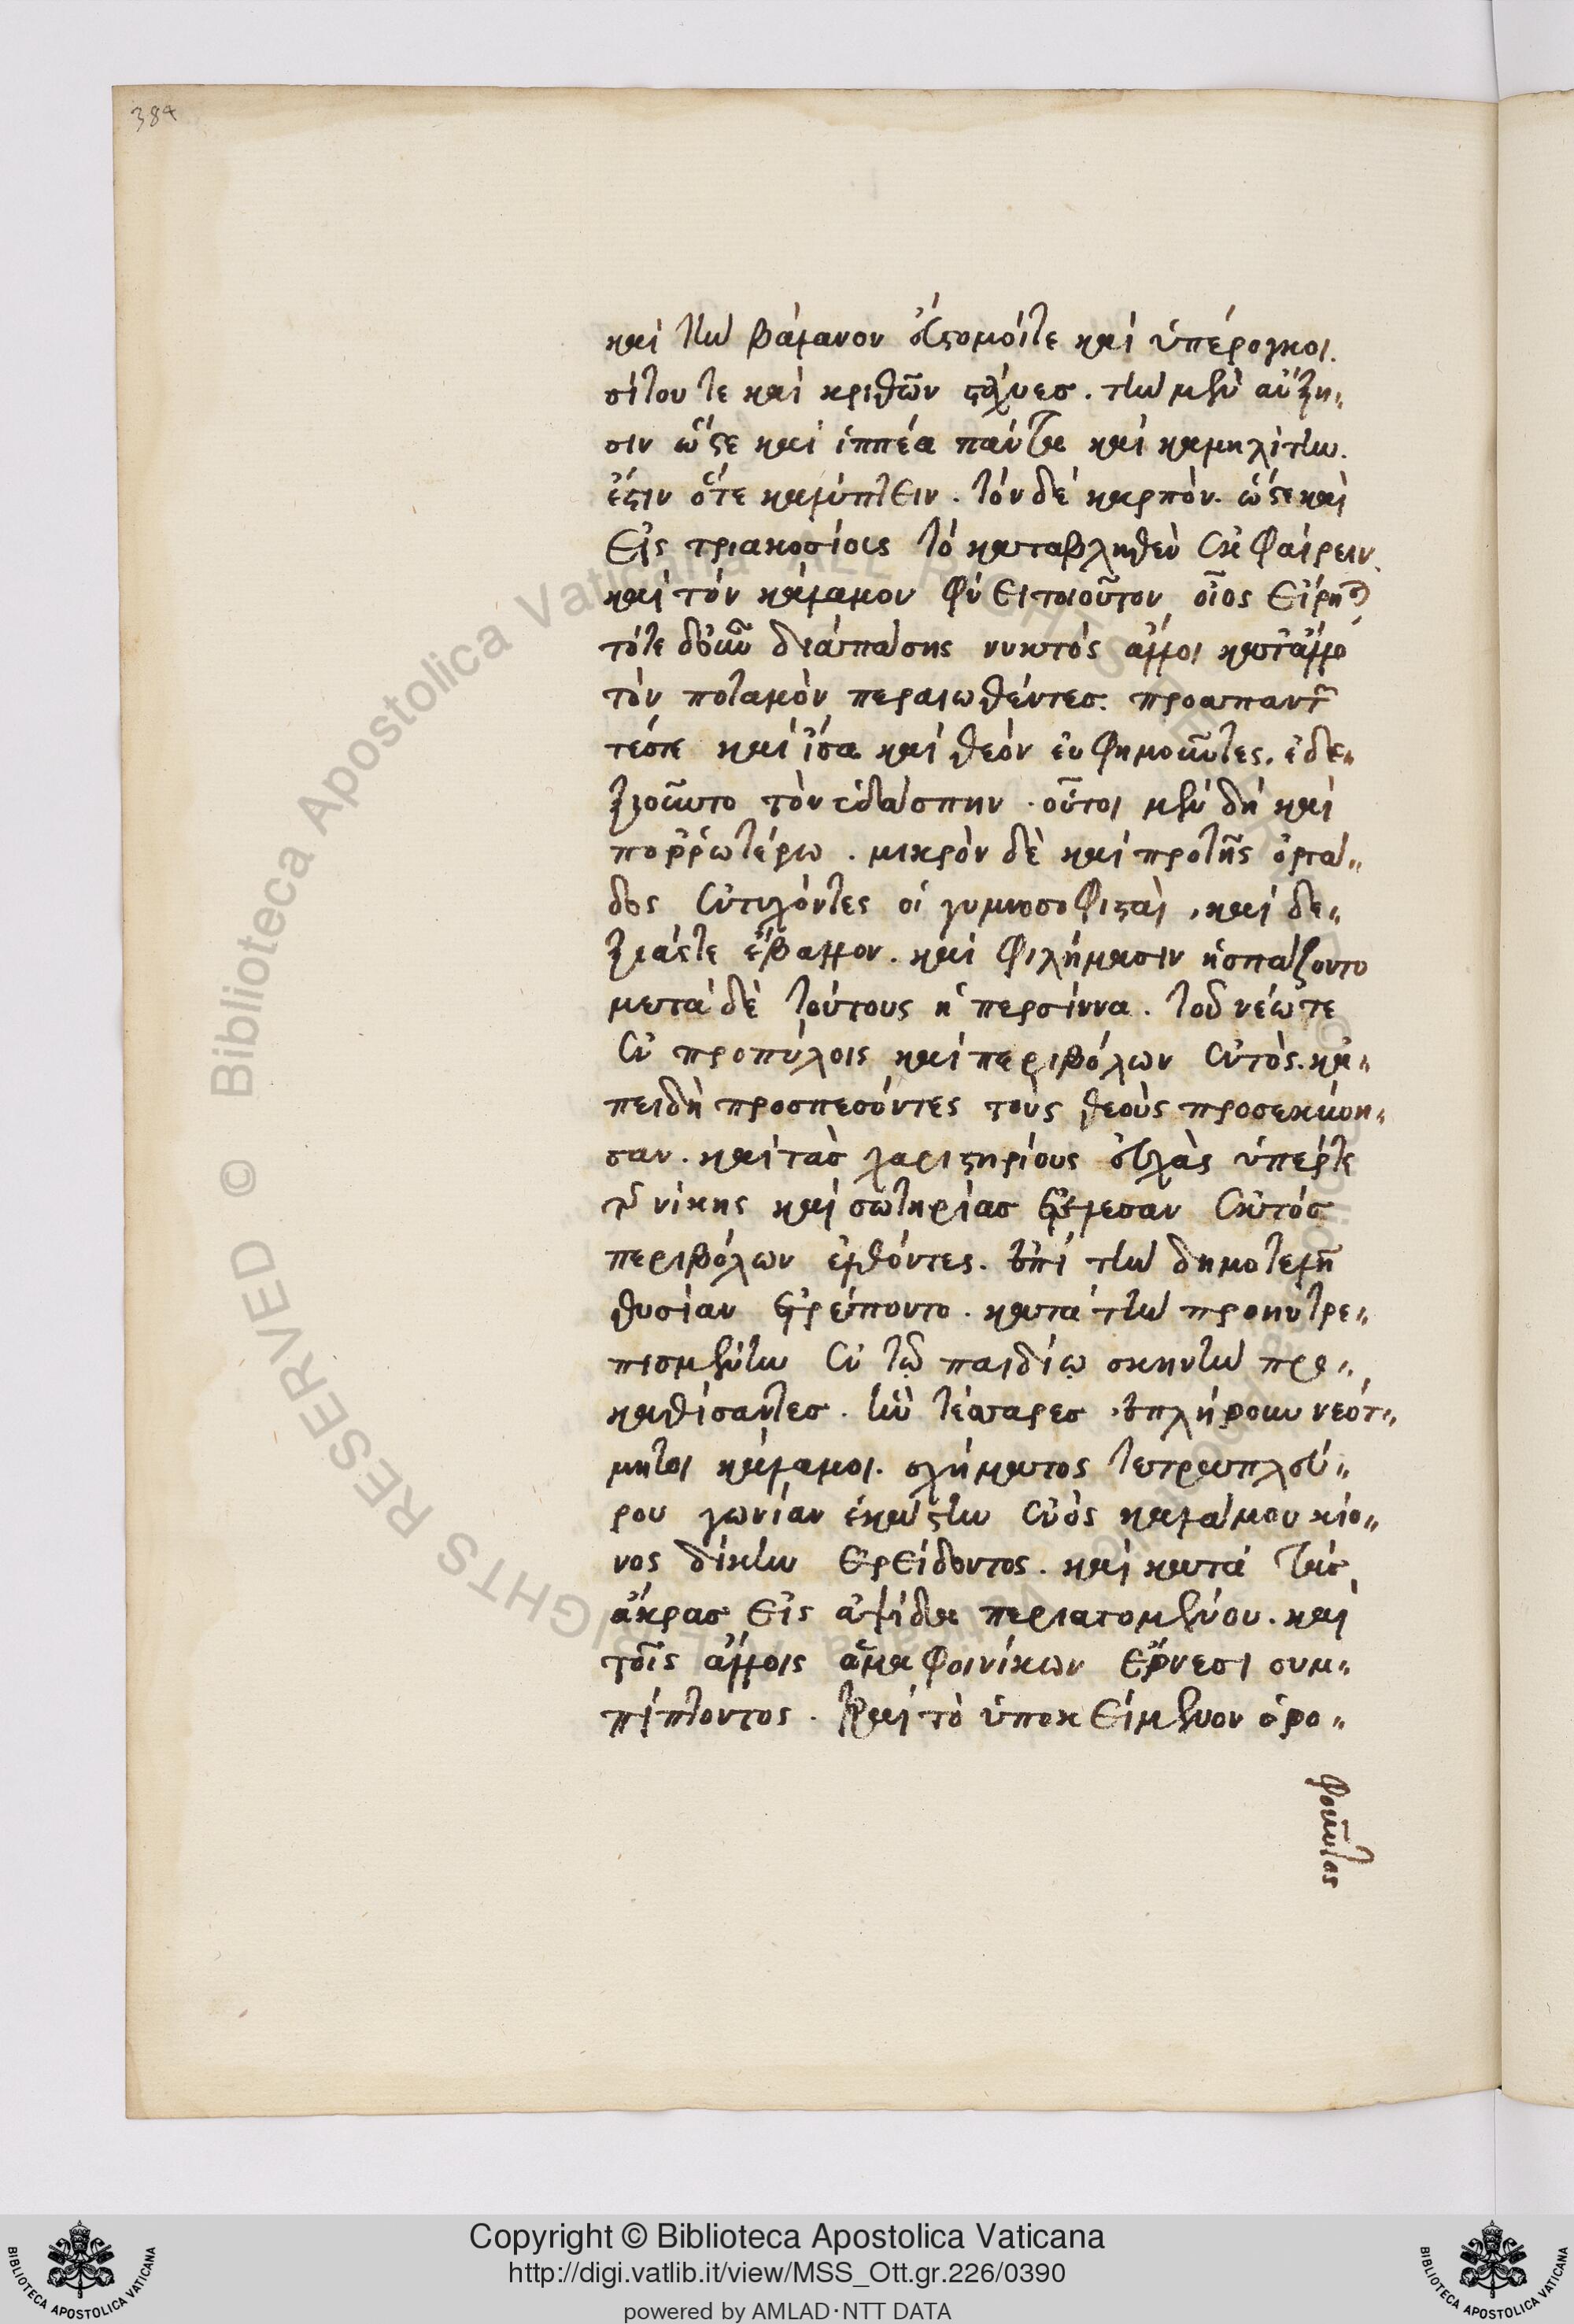 384
καὶ τὴν βάλανον εὔστομοί τε καὶ ὑπέρογκοι.
σίτου τε καὶ κριθῶν στάχυες. τὴν μὲν αὔξη„
σιν ὥστε καὶ ἱππέα πάντα καὶ καμηλίτην.
ἔστιν ὅτε καλύπτειν. τὸν δὲ καρπὸν. ὥστε καὶ
εἰς τριακοσίους τὸ καταβληθὲν ἐκφαίρειν.
καὶ τὸν κάλαμον φύει τοιοῦτον οἷος εἴρηται
τότε δ' οὖν διαπάσης νυκτὸς ἄλλοι κατ' ἄλλο
τὸν ποταμὸν περαιωθέντες. προαπαντῶν
τές τε καὶ ἴσα καὶ θεὸν εὐφημοῦντες. ἐδε„
ξιοῦντο τὸν ὑδάσπην. οὗτοι μὲν δὴ καὶ
πορρωτέρω. μικρὸν δὲ καὶ πρὸ τῆς ὀργά„
δος ἐντυχόντες οἱ γυμνοσοφισταὶ, καὶ δε„
ξιάς τε ἔβαλλον. καὶ φιλήμασιν ἠσπάζοντο
μετὰ δὲ τούτους ἡ περσίννα. τοῦ νέω τε
ἐν προπύλοις καὶ περιβόλων ἐντὸς. κἀ„
πειδὴ προσπεσόντες τοὺς θεοὺς προσεκύνη„
σαν. καὶ τὰς χαριστηρίους εὐχὰς ὑπέρ τε
τῆς νίκης καὶ σωτηρίας ἐτέλεσαν ἐκτὸς
περιβόλων ἐλθόντες. ἐπὶ τὴν δημοτελῆ
θυσίαν ἐτρέποντο. κατὰ τὴν προηυτρε„
πισμένην ἐν τῷ παιδίῳ σκηνὴν προ„
καθίσαντες. ἣν τέσσαρες ἐπλήρουν νεότ„
μητοι κάλαμοι. σχήματος τετραπλεύ„
ρου γωνίαν ἑκάστην ἑνὸς καλάμου κίο„
νος δίκην ἐρείδοντος. καὶ κατὰ τὰς
ἄκρας εἰς ἁψίδα περιαγομένου. καὶ
τοῖς ἄλλοις ἅμα φοινίκων ἔρνεσι συμ„
πίπτοντος. καὶ τὸ ὑποκείμενον ὀρο„
φοῦντος
Copyright © Biblioteca Apostolica Vaticana
http://digi.vatlib.it/view/MSS_Ott.gr.226/0390
powered by AMLAD·NTT DATA